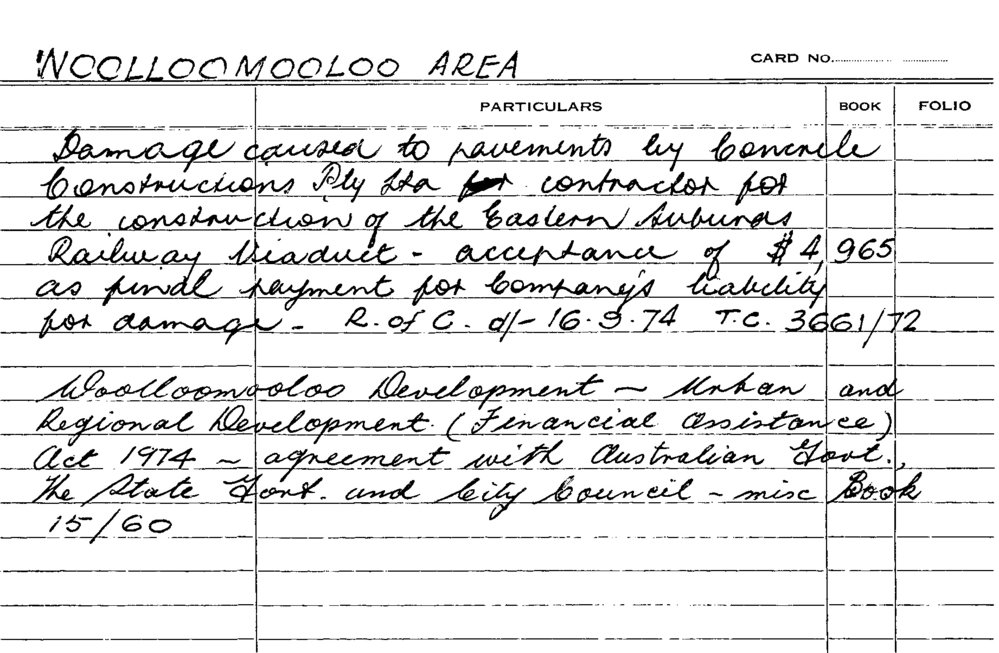 WOOLLOOMOOLOO AREA CARD No.
PARTICULARS BOOK FOLIO
Damage caused to pavements by Concrete
Constructions Pty Ltd contractor for
the construction of the Eastern Suburbs
Railway Viaduct - acceptance of $4,965
as final payment for Company's liability
for damage - R. of C. d/- 16.9.74 T.C. 3661/72
Woolloomooloo Development - Urban and
Regional Development (Financial Assistance)
Act 1974 - agreement with Australian Govt.,
The State Govt. and City Council - misc Book
15/60